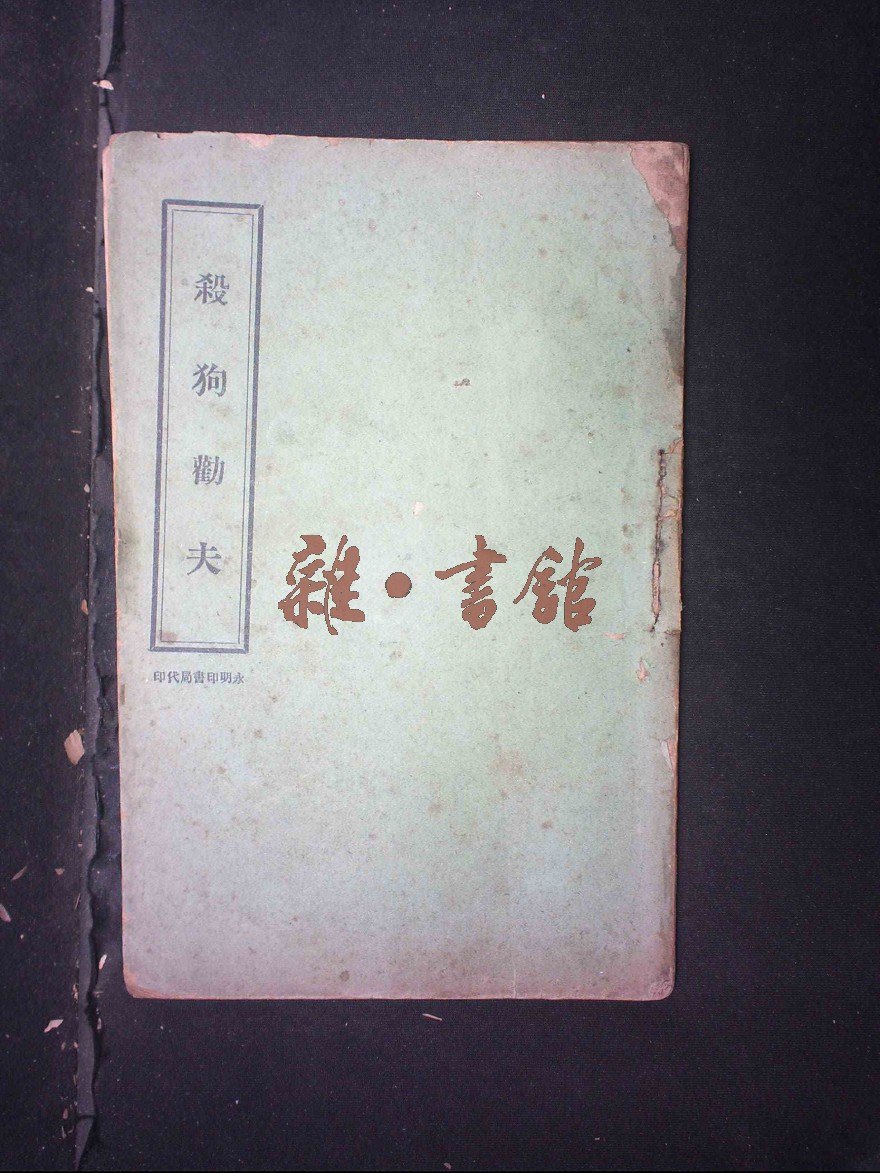 殺狗勸夫
永明印書局代印
雜·書館